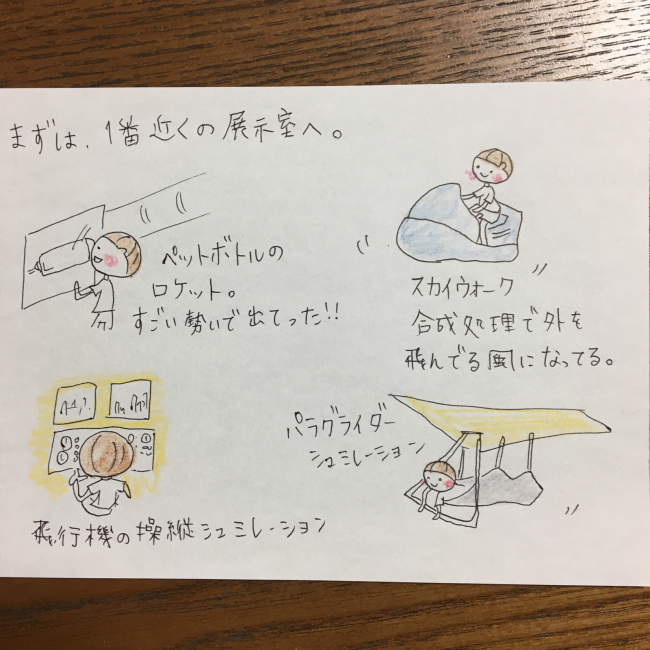 まずは、1番近くの展示室へ。
ペットボトルの
ロケット。
すごい勢いで出てった!!
スカイウォーク
合成処理で外を
飛んでる風になってる。
パラグライダー
シュミレーション
飛行機の操縦シュミレーション